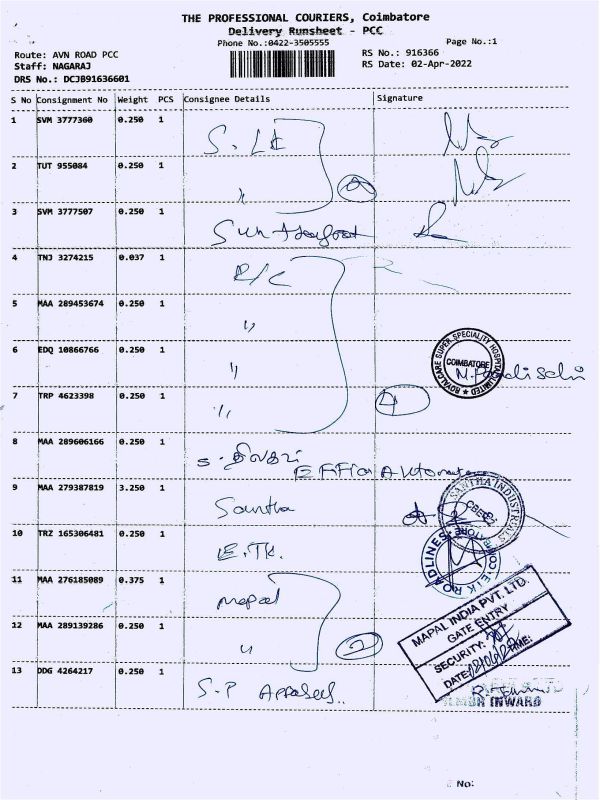 THE PROFESSIONAL COURIERS, Coimbatore
Delivery Runsheet - PCC
Phone No.:0422-3505555
Page No.:1
Route: AVN ROAD PCC
RS No.: 916366
Staff: NAGARAJ
RS Date: 02-Apr-2022
DRS No.: DCJB91636601
S No Consignment No Weight PCS Consignee Details Signature
1 SVM 3777360 0.250 1
2 TUT 955084 0.250 1 〃
3 SVM 3777507 0.250 1 Sun
4 TNJ 3274215 0.037 1 R/C
5 MAA 289453674 0.250 1 〃
6 EDQ 10866766 0.250 1 〃
ROYALCARE SUPER SPECIALITY HOSPITAL LIMITED
COIMBATORE
7 TRP 4623398 0.250 1 〃 4
8 MAA 289606166 0.250 1
9 MAA 279387819 3.250 1 Santha
SANTHA INDUSTRIALS
10 TRZ 165306481 0.250 1 E.TK.
ROADLINES
11 MAA 276185089 0.375 1 mapal
MAPAL INDIA PVT. LTD.
GATE ENTRY
12 MAA 289139286 0.250 1 〃 2
SECURITY:
DATE: TIME:
13 DDG 4264217 0.250 1 S.P
INWARD
No: